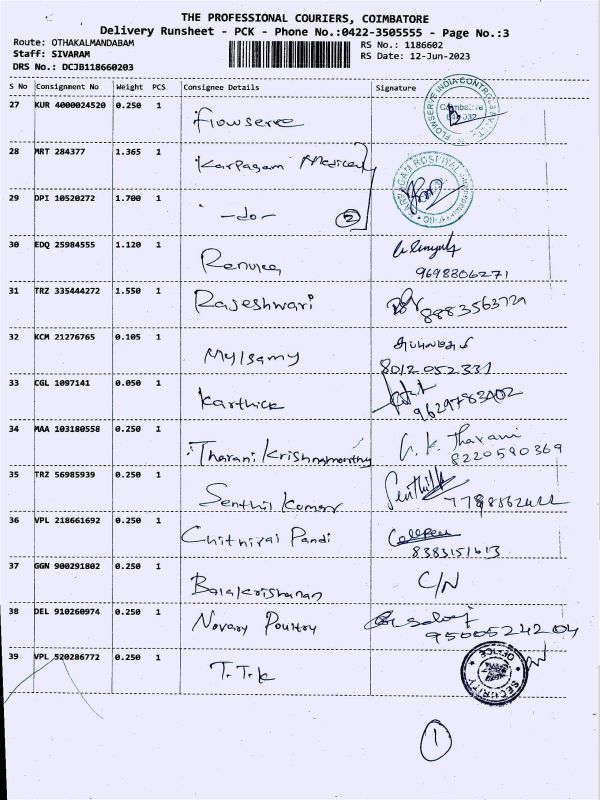 THE PROFESSIONAL COURIERS, COIMBATORE
Delivery Runsheet - PCK - Phone No.:0422-3505555 - Page No.:3
Route: OTHAKALMANDABAM
RS No.: 1186602
Staff: SIVARAM
RS Date: 12-Jun-2023
DRS No.: DCJB118660203
S No Consignment No Weight PCS Consignee Details Signature
27 KUR 4000024520 0.250 1 Flowserve
FLOWSERVE INDIA CONTROLS
Coimbatore
28 MRT 284377 1.365 1 Karpagam Medical
KARPAGAM HOSPITAL
29 DPI 10520272 1.700 1 -do- 2
30 EDQ 25984555 1.120 1 Renuka
9698806271
31 TRZ 335444272 1.550 1 Rajeshwari
8883563729
32 KCM 21276765 0.105 1 Mylsamy
8012052331
33 CGL 1097141 0.050 1 Karthick
9629783402
34 MAA 103180558 0.250 1 Tharani Krishnamorthy G. K. Tharani
8220590369
35 TRZ 56985939 0.250 1 Senthil Kumar Senthil
36 VPL 218661692 0.250 1 Chithirai Pandi
8383151613
37 GGN 900291802 0.250 1 Balakrishanan C/N
38 DEL 910260974 0.250 1 Novary Poultry
9500524204
39 VPL 520286772 0.250 1 T.T.K
SECURITY OFFICE
1